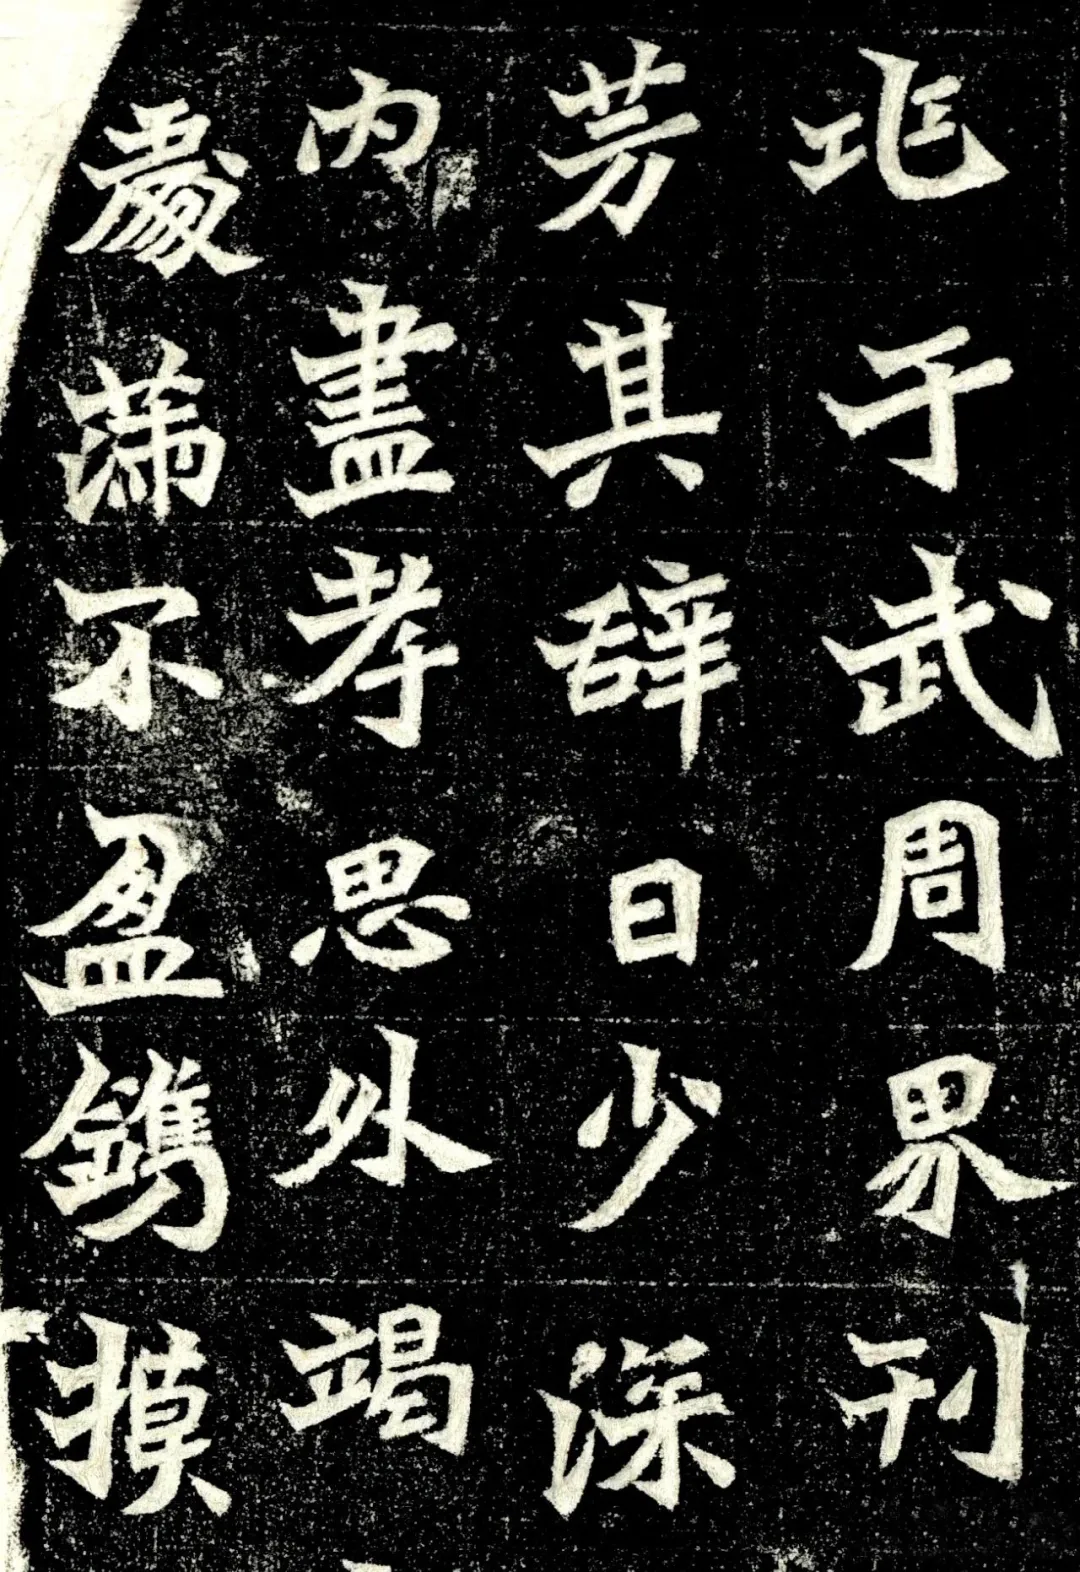 兆于武周界刊
芳其辞曰少深
内盡孝思外竭
處滿不盈鐫摸